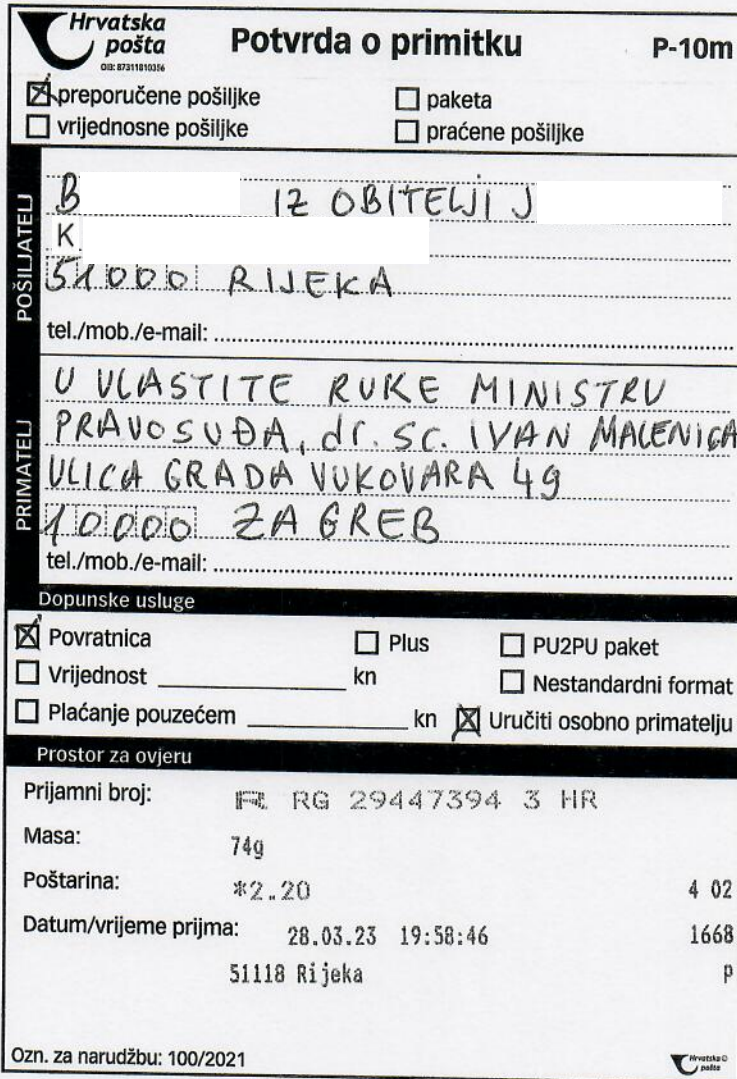 Hrvatska
pošta
OIB: 87311810356
Potvrda o primitku
P-10m
preporučene pošiljke
paketa
vrijednosne pošiljke
praćene pošiljke
POŠILJATELJ
B IZ OBITELJI J
K
51000 RIJEKA
tel./mob./e-mail:
PRIMATELJ
U VLASTITE RUKE MINISTRU
PRAVOSUĐA, dr. sc. IVAN MALENICA
ULICA GRADA VUKOVARA 49
10000 ZAGREB
tel./mob./e-mail:
Dopunske usluge
Povratnica
Plus
PU2PU paket
Vrijednost kn
Nestandardni format
Plaćanje pouzećem kn
Uručiti osobno primatelju
Prostor za ovjeru
Prijamni broj: R RG 29447394 3 HR
Masa: 74g
Poštarina: *2.20 4 02
Datum/vrijeme prijma: 28.03.23 19:58:46 1668
51118 Rijeka p
Ozn. za narudžbu: 100/2021
Hrvatska
pošta